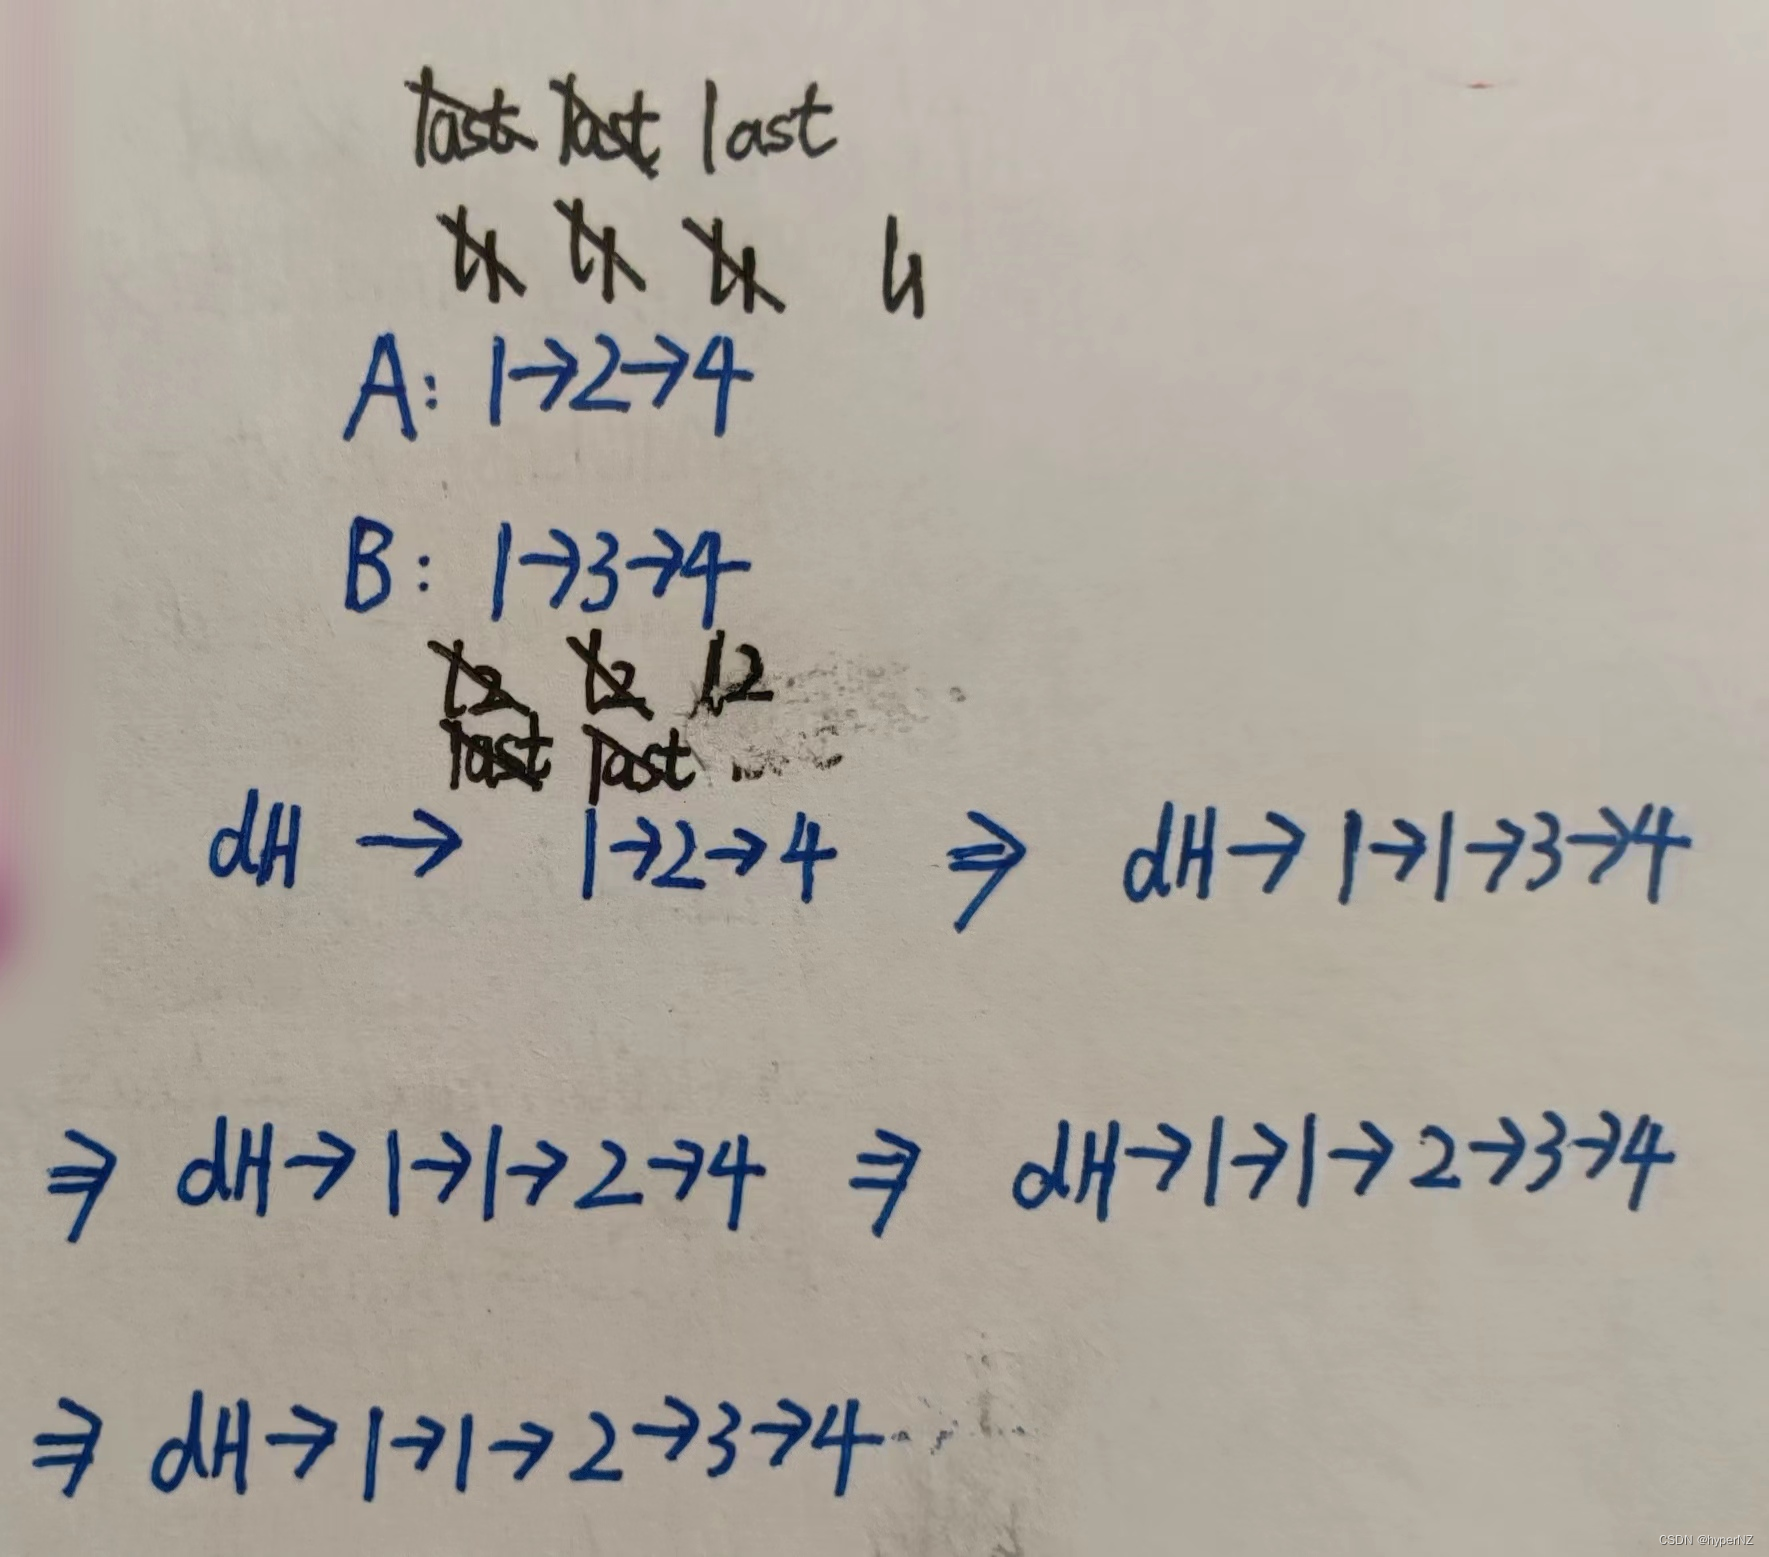 last last last
l1 l1 l1 l1
A: 1→2→4
B: 1→3→4
l2 l2 l2
last last
dH → 1→2→4 ⇒ dH→1→1→3→4
⇒ dH→1→1→2→4 ⇒ dH→1→1→2→3→4
⇒ dH→1→1→2→3→4
CSDN @hyperNZ